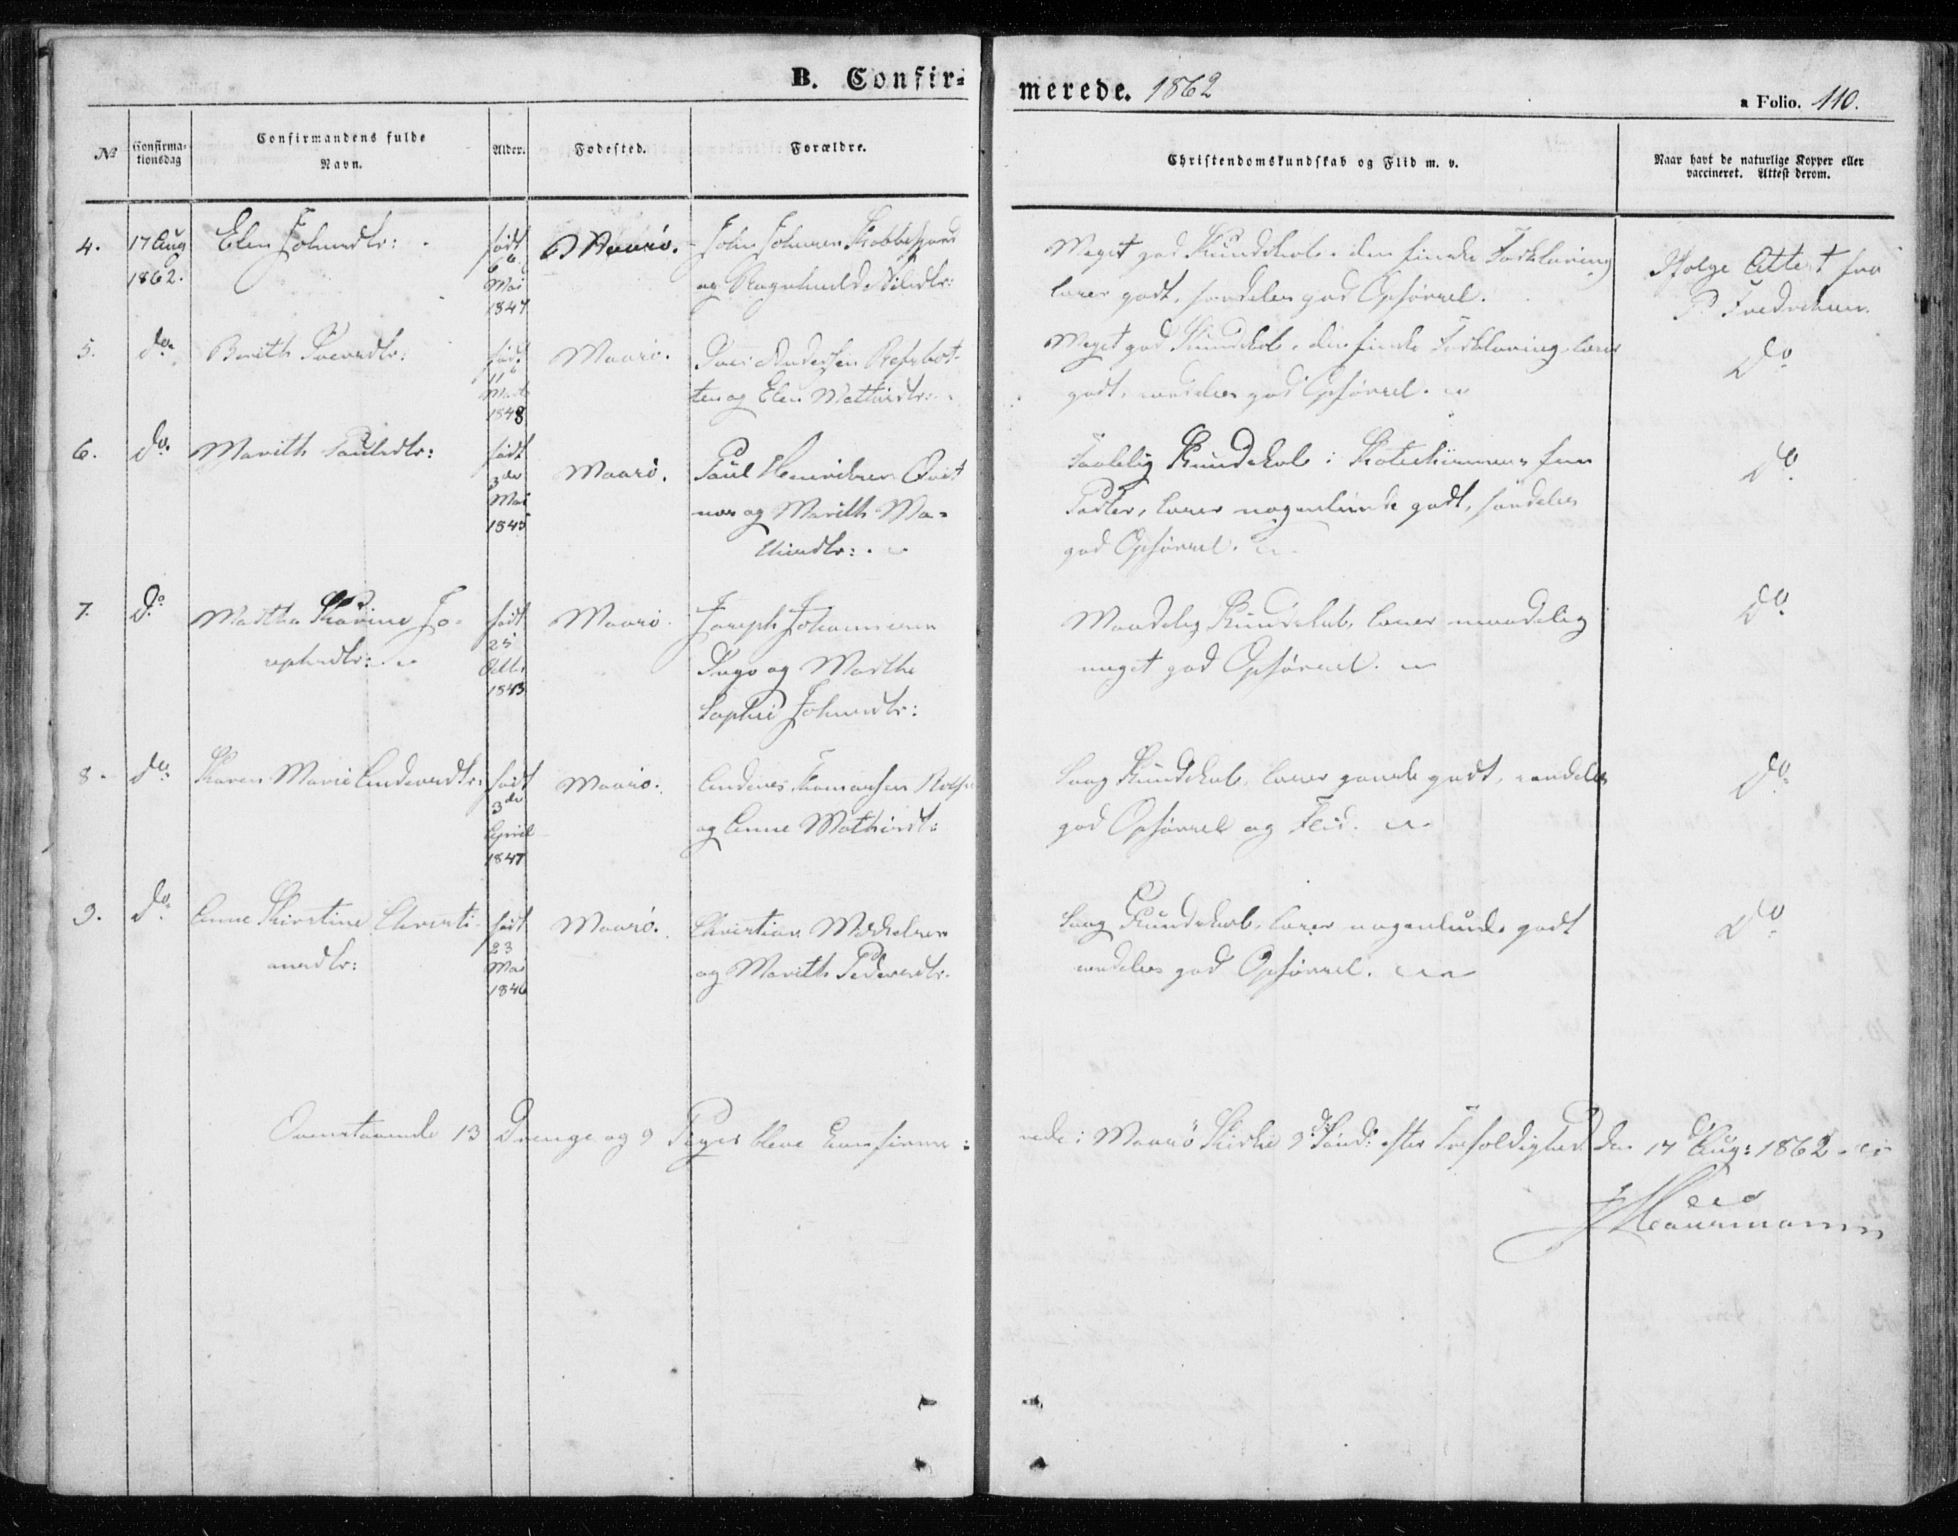 B. Confir-
merede. 1862
a Folio. 110.
No
Confirma-
tionsdag
Confirmandens fulde
Navn.
Alder.
Fødested.
Forældre.
Christendomskundskab og Flid m. v.
Naar havt de naturlige Kopper eller
vaccineret. Attest derom.
4.
17 Aug
1862.
Elen Johnsdtr:
født
6
Mai
1847
Maasø.
John Johnsen
og Ragnhild Nilsdtr:
Meget god Kundskab i den
læser godt, særdeles god Opførsel.
Ifølge Attest fra
P. Fredriksen.
5.
do
Berith
født
11
1848
Maasø.
Andersen Refsbot-
ten og Elen Mathisdtr:
Meget god Kundskab i den Forklaring, læser
godt, særdeles god Opførsel.
Do
6.
do
Marith Paulsdtr:
født
3de
Mai
1845
Maasø.
Paul Henriksen Qvit
nes og Marith Ma-
thisdtr:
Taalelig Kundskab i Katechismens fem
Parter, læser nogenlunde godt, særdeles
god Opførsel.
Do
7.
Do
Martha Karine Jo-
sephsdtr:
født
25
Octbr
1845
Maasø
Joseph Johannesen
og Marthe
Sophie Johnsdtr:
Maadelig Kundskab, læser maadelig
meget god Opførsel.
Do
8.
do
Karen Marie Andersdtr:
født
3de
April
1847
Maasø.
Anders Thomassen
og Anne Mathisdt:
Svag Kundskab, læser ganske godt, særdeles
god Opførsel og Flid.
Do
9.
Do
Anne Kirstine Christi-
ansdtr:
født
23
Mai
1846
Maasø.
Christian Mikkelsen
og Marith Pedersdtr.
Svag Kundskab, læser nogenlunde godt
særdeles god Opførsel.
Do
Ovenstaaende 13 Drenge og 9 Piger bleve Confirme:
rede i Maasø Kirke 9 Sønd: efter Trefoldighed den 17 Aug: 1862.